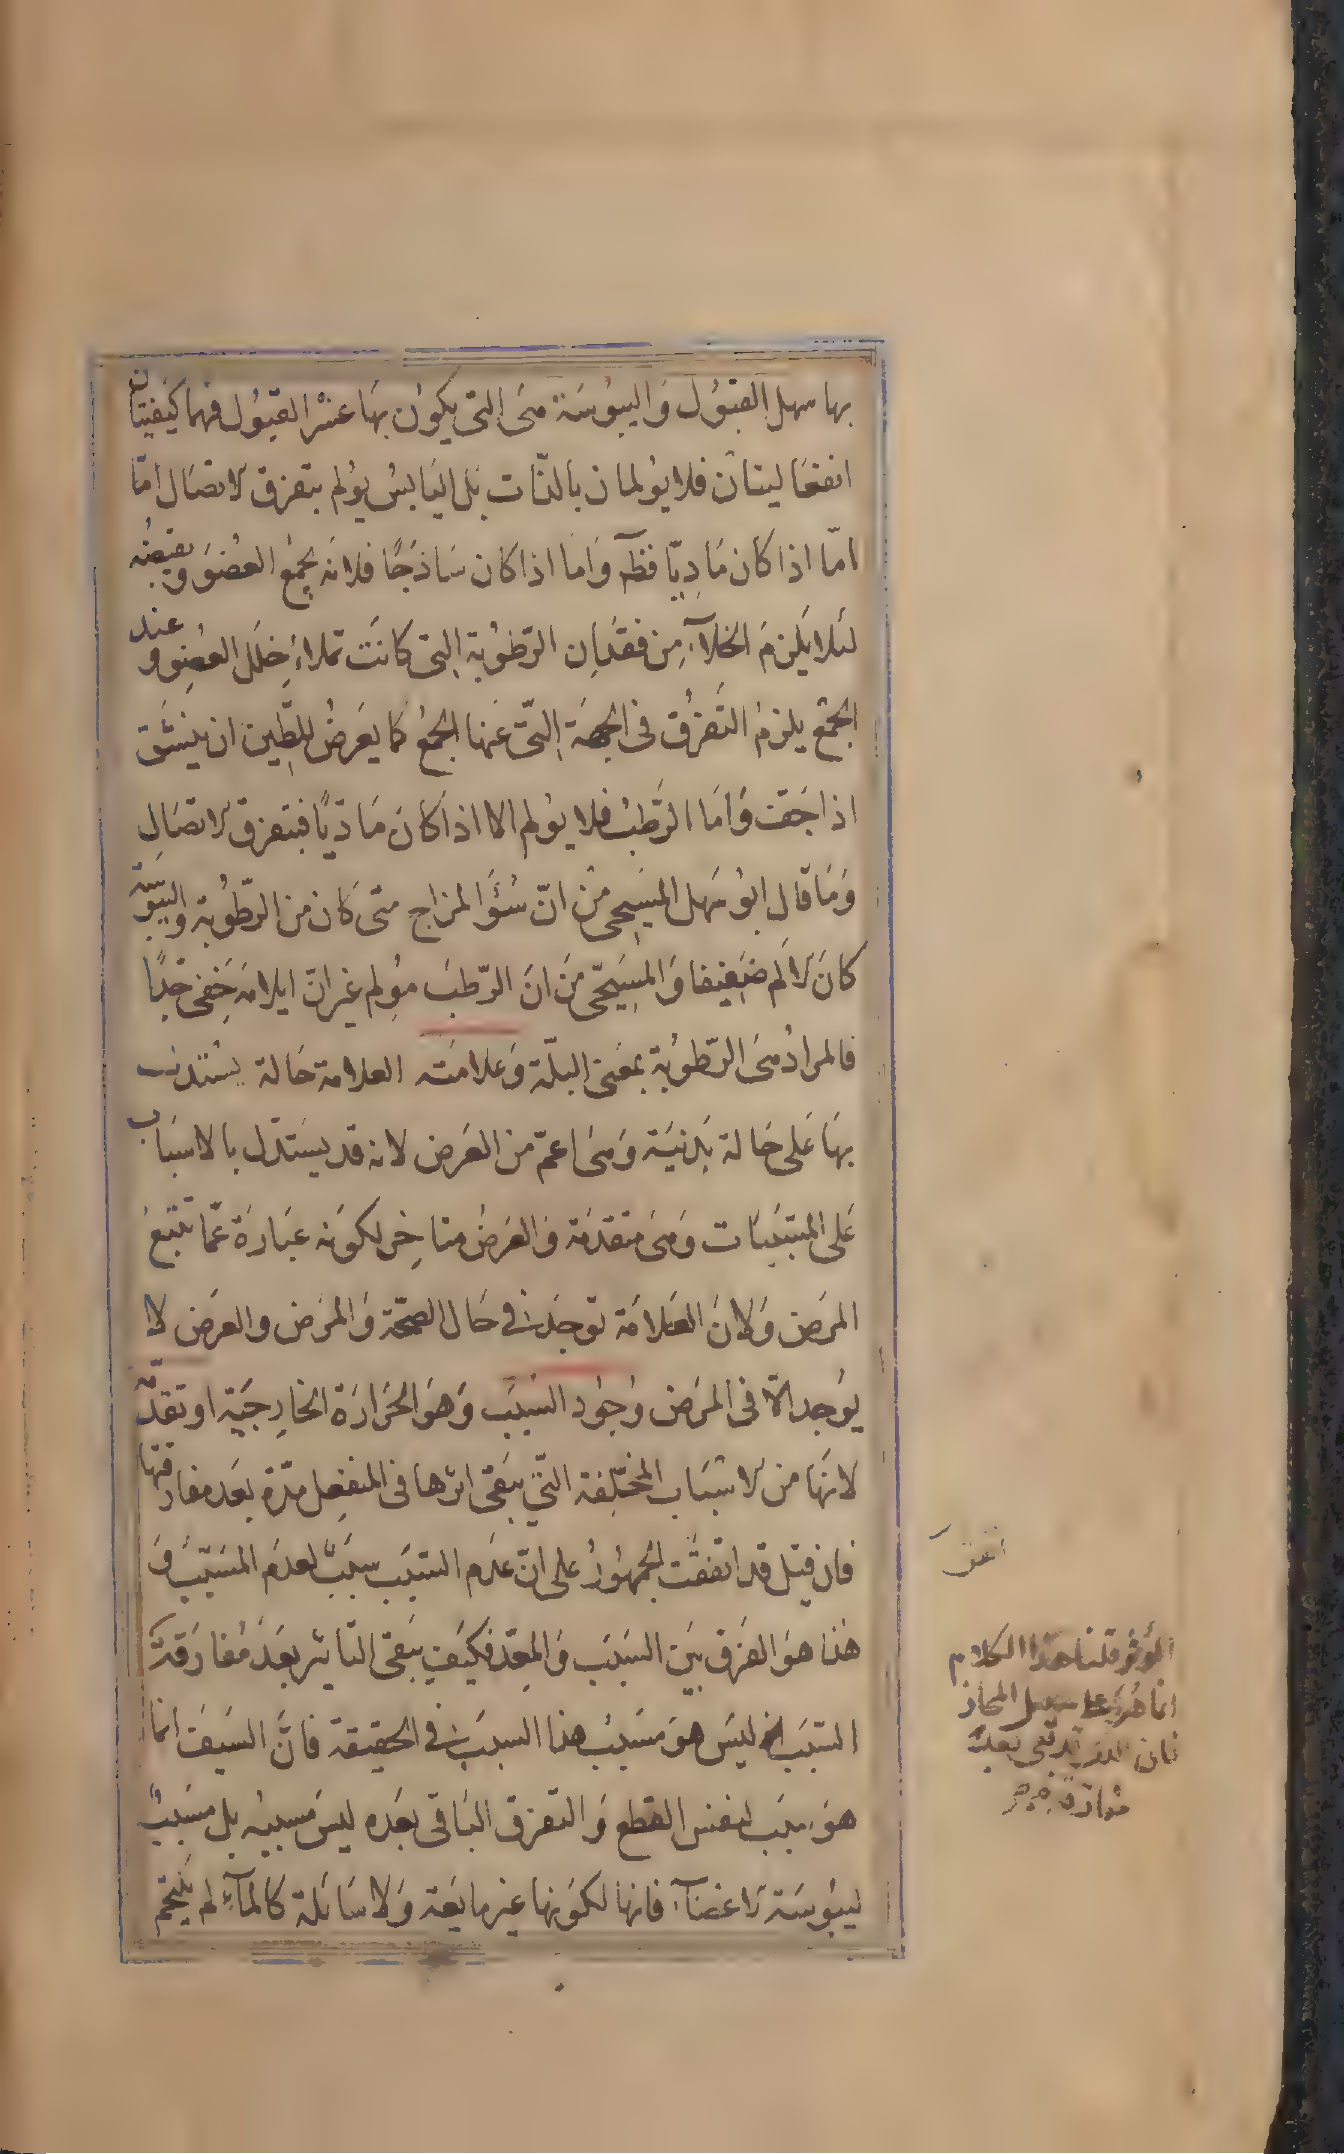 بها سهل القبول واليبوسة هى التى يكون بها عسر القبول فهما كيفيتان
انفعاليتان فلا يولمان بالذات بل اليابس يولم بتفرق الاتصال امّا
امّا اذا كان ماديّا فظ وامّا اذا كان ساذجًا فلانه يجمع العضو ويقبضه
لئلا يلزم الخلآء من فقدان الرّطوبة التى كانت تملاء خلل العضو وعند
الجمع يلزم التفرق فى الجهة التّى عنها الجمع كما يعرض للطّين ان ينشق
اذا جفت وامّا الرّطب فلا يولم الا اذا كان ماديًا فبتفرق الاتصال
وما قال ابو سهل المسيحى من انّ سُوء المزاج متى كان من الرّطوبة واليبوسة
كان الالم ضعيفا والمسيحّى من انّ الرّطب مولم غير انّ ايلامه خفى جدًا
فالمراد من الرّطوبة بمعنى البلّة وعلامته العلامة حالة يستدل
بها على حالة بدنية وهى اعمّ من العرض لانه قد يستدّل بالاسباب
على المسببات وهى متقدمة والعرض متاخر لكونه عبارة عمّا يتبع
المرض ولان العلامة توجد فى حال الصحّة والمرض والعرض لا
يوجد الّا فى المرض وجود السبب وهو الحرارة الخارجية او تقدّمه
لانها من الاسباب المختلفة التّى يبقى اثرها فى المنفعل مدّة بعد مفارقتها
فان قيل قد اتفقت الجمهور على انّ عدم السبب سبب لعدم المسبب و
هذا هو الفرق بين السبب والمعدّ فكيف يبقى التاثر بعد مفارقة
السبب ليس هو مسبب هذا السبب فى الحقيقة فانّ السيف انما
هو سبب لنفس القطع والتفرق الباقى بعده ليس مسببه بل مسبب
ليبوسة الاعضآء فانها لكونها غير مايعة ولا سائلة كالمآء لم يلتحم
المؤثر قلنا هذا الكلام
انما هو على سبيل المجاز
فان قد يبقى بعد